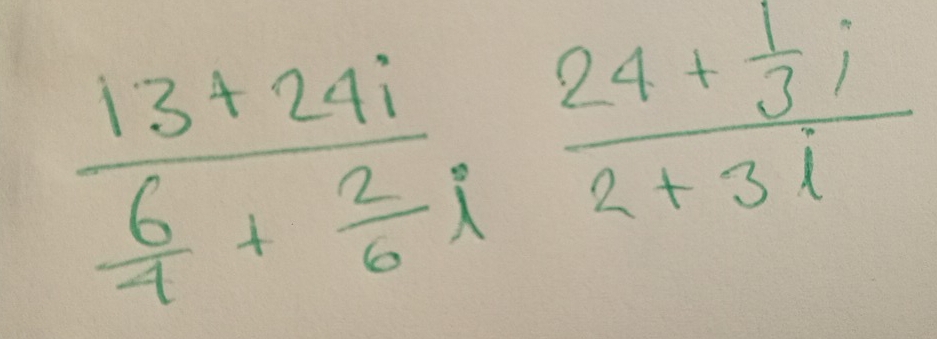 \frac{13+24i}{\frac{6}{4}+\frac{2}{6}i} \frac{24+\frac{1}{3}i}{2+3i}